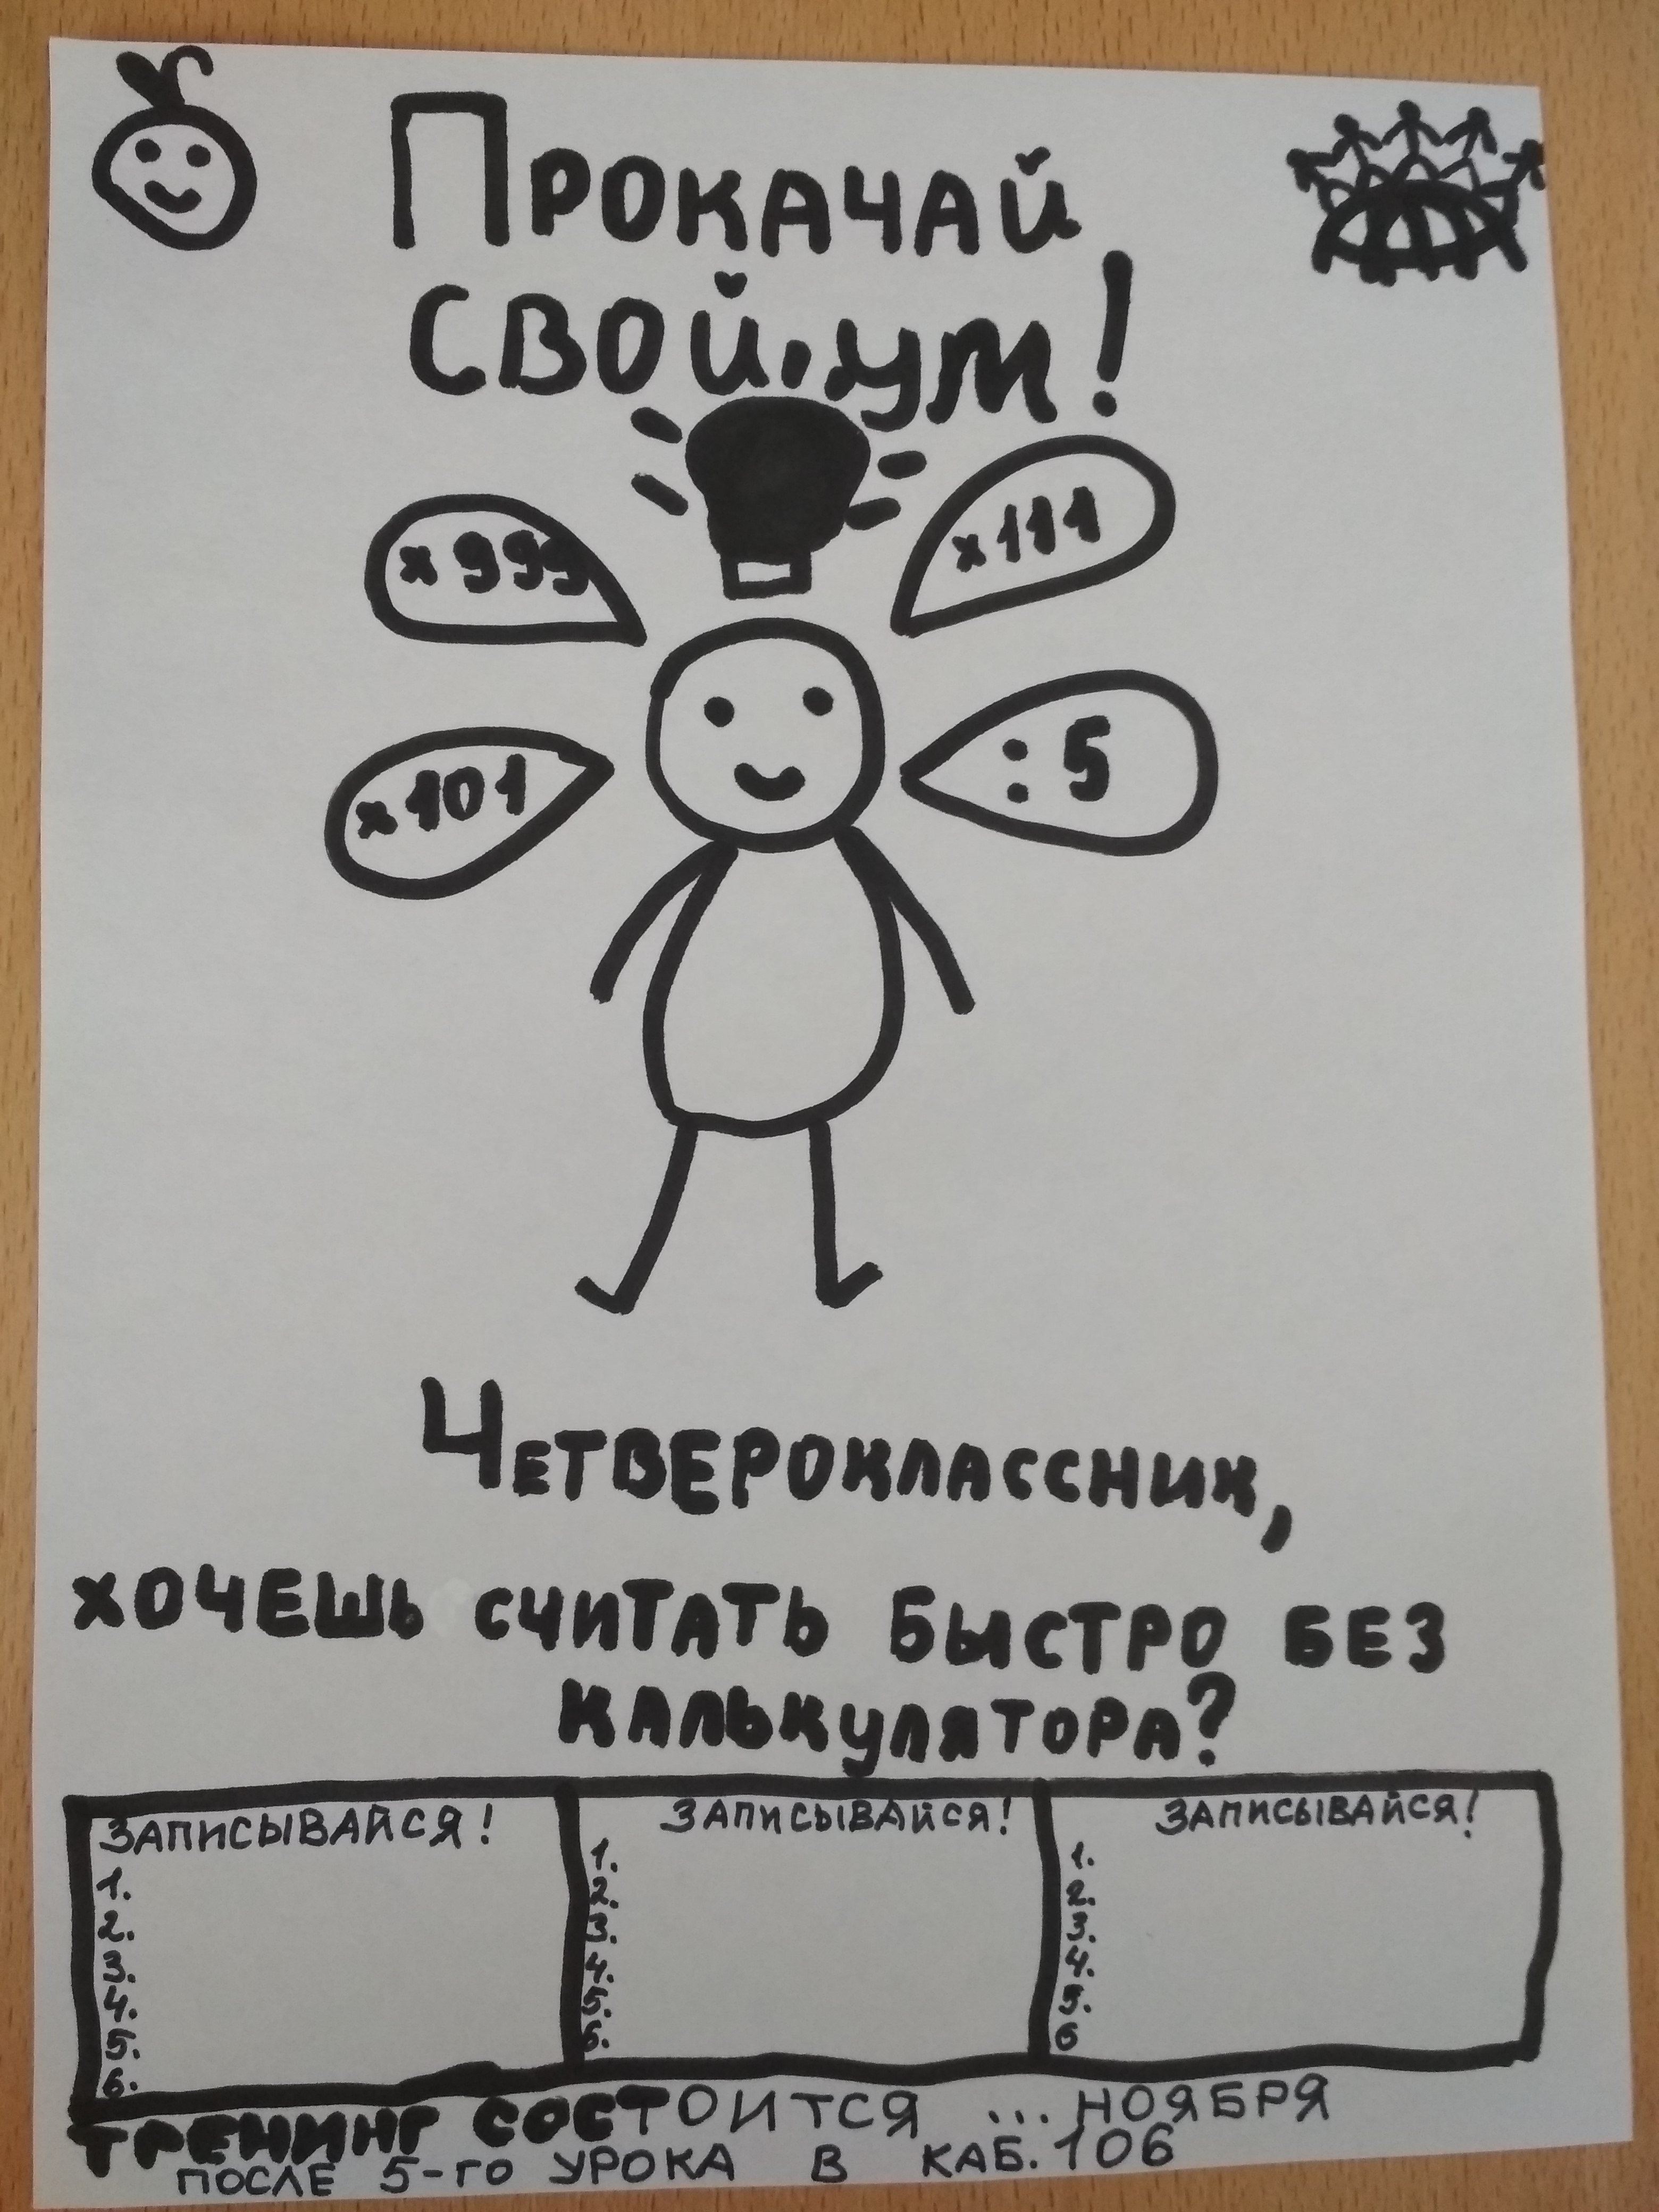 Прокачай
свой ум!
x 999
x 111
x 101
: 5
Четвероклассник,
хочешь считать быстро без
калькулятора?
Записывайся!
1.
2.
3.
4.
5.
6.
Записывайся!
1.
2.
3.
4.
5.
6.
Записывайся!
1.
2.
3.
4.
5.
6
Тренинг состоится ... ноября
после 5-го урока в каб. 106